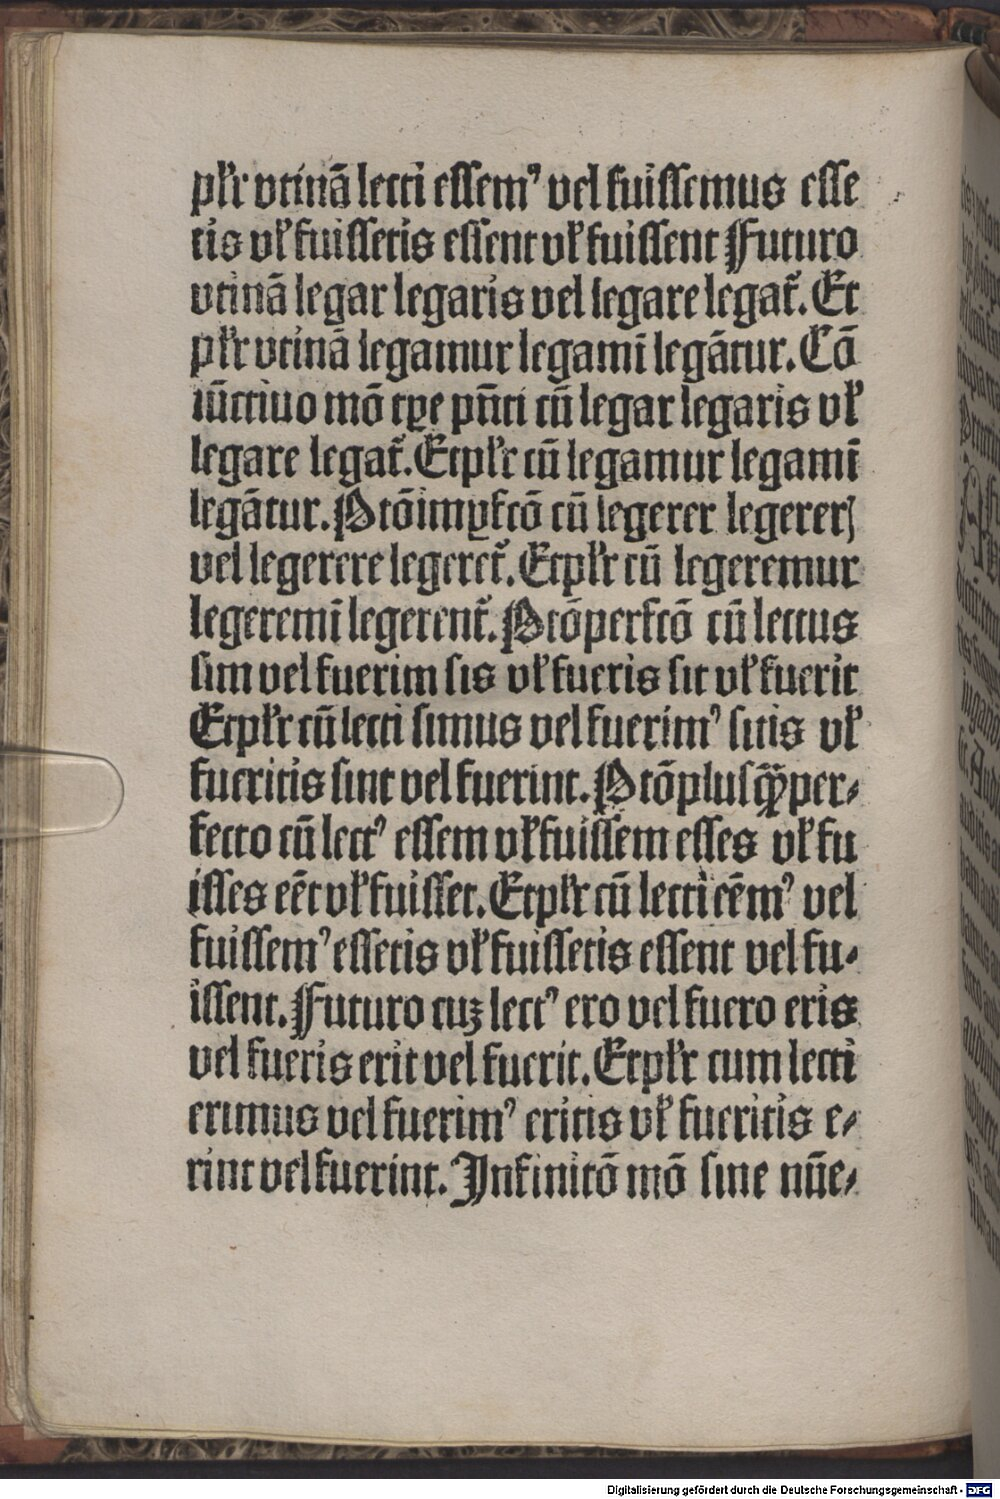 pl̛r vtinā lecti essemꝰ vel fuissemus esse
tis vl̛ fuissetis essent vl̛ fuissent Futuro
vtinā legar legaris vel legare legat᷑. Et
pl̛r vtinā legamur legamī legātur. Cō
iūctiuo mō tp̄e pn̄ti cū legar legaris vl̛
legare legat᷑. Et pl̛r cū legamur legamī
legātur. Ptōimꝑfcō cū legerer legererꝭ
vel legerere legeret᷑. Et pl̛r cū legeremur
legeremī legerent᷑. Ptōperfcō cū lectus
sim vel fuerim sis vl̛ fueris sit vl̛ fuerit
Et pl̛r cū lecti simus vel fuerimꝰ sitis vl̛
fueritis sint vel fuerint. Ptōplusq̄ꝫper⸗
fecto cū lectꝰ essem vl̛ fuissem esses vl̛ fu
isses eēt vl̛ fuisset. Et pl̛r cū lecti eēmꝰ vel
fuissemꝰ essetis vl̛ fuissetis essent vel fu⸗
issent. Futuro cuꝫ lectꝰ ero vel fuero eris
vel fueris erit vel fuerit. Et pl̛r cum lecti
erimus vel fuerimꝰ eritis vl̛ fueritis e⸗
rint vel fuerint. Infinitō mō sine nūe⸗
Digitalisierung gefördert durch die Deutsche Forschungsgemeinschaft - DFG